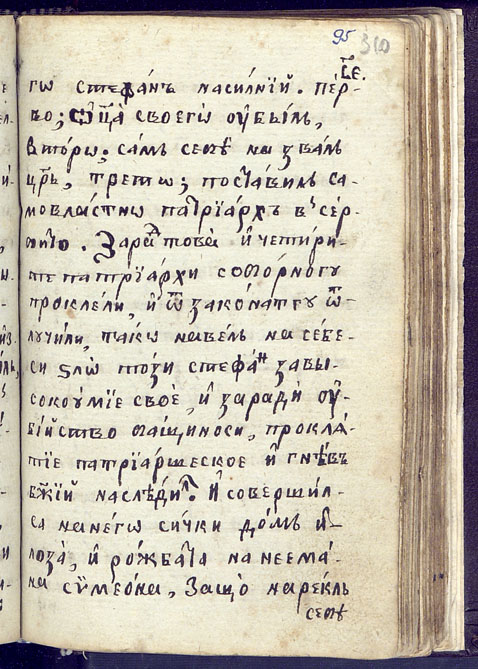 95 310
ч҃е.
гѡ стефа́нъ насилнїй. пе́р-
во; ѿц҃а̀ своегѡ ᲂу҆бы́лъ,
вторѡ; самъ себѣ назвалъ
цр҃ь, третѡ; поста́вилъ са-
мовла́стнѡ патрїа́рхъ въ сер-
бию. Заратова̀ и҆ четири-
те патрїа́рхи соборногу
прокле́ли, и҆ ѿ зако́натгу ѿ-
лучи́ли, такѡ наве́лъ на се́бе-
си ѕлѡ̀ този стефа́н за́вы-
сокоу́мїе своѐ, и҆ зарадѝ ᲂу҆-
бі́йство ѡащиноси, прокла́-
тїе патрїа́ршеское и҆ гнѣ́въ
бж҃їй наслѣ́ди. И҆ соверши́л-
са нанегѡ си́чки до́мъ и҆
лоза̀, и҆ ро́жбата на неема́-
на сѷмео́на, Защо̀ наре́клъ
себѣ